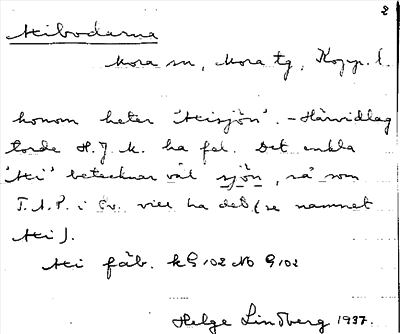 2
Åkibodarna
Mora sn, Mora tg, Kopp. l.
honom heter 'Åkisjön'. - Härvidlag
torde H. J. K. ha fel. Det enkla
'Åki' betecknar väl sjön, så som
T. A. P. i Sv. vill ha det (se namnet
Åki).
Åki fäb. kG 102 No G 102
Helge Lindberg 1937.